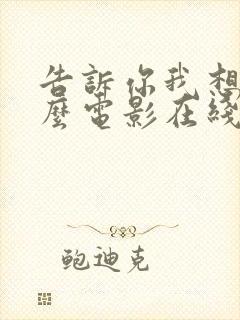 告訴你我想
麼電影在綫
鲍迪克